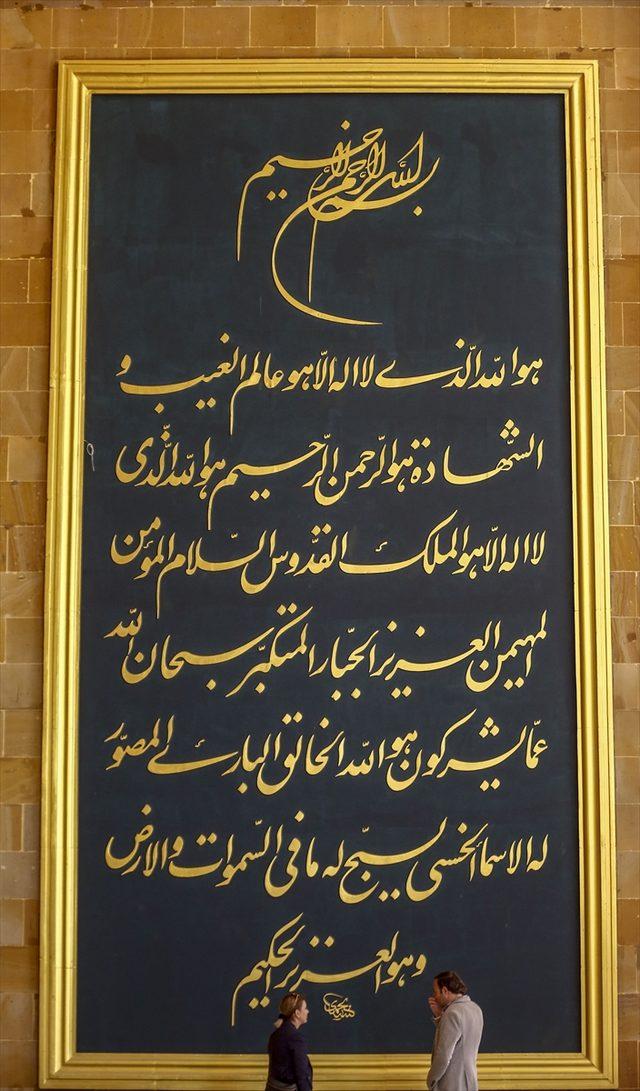 بسم الله الرحمن الرحيم
هو الله الّذے لا اله الّا هو عالم الغيب و
الشّهادة هو الرّحمن الرّحيم هو الله الّذى
لا اله الّا هو الملك القدّوس السّلام المؤمن
المهيمن العزيز الجبّار المتكبّر سبحان الله
عمّا يشركون هو الله الخالق البارے المصوّر
له الاسما الحسنى يسبّح له ما فى السّموات والارض
وهو العزيز الحكيم